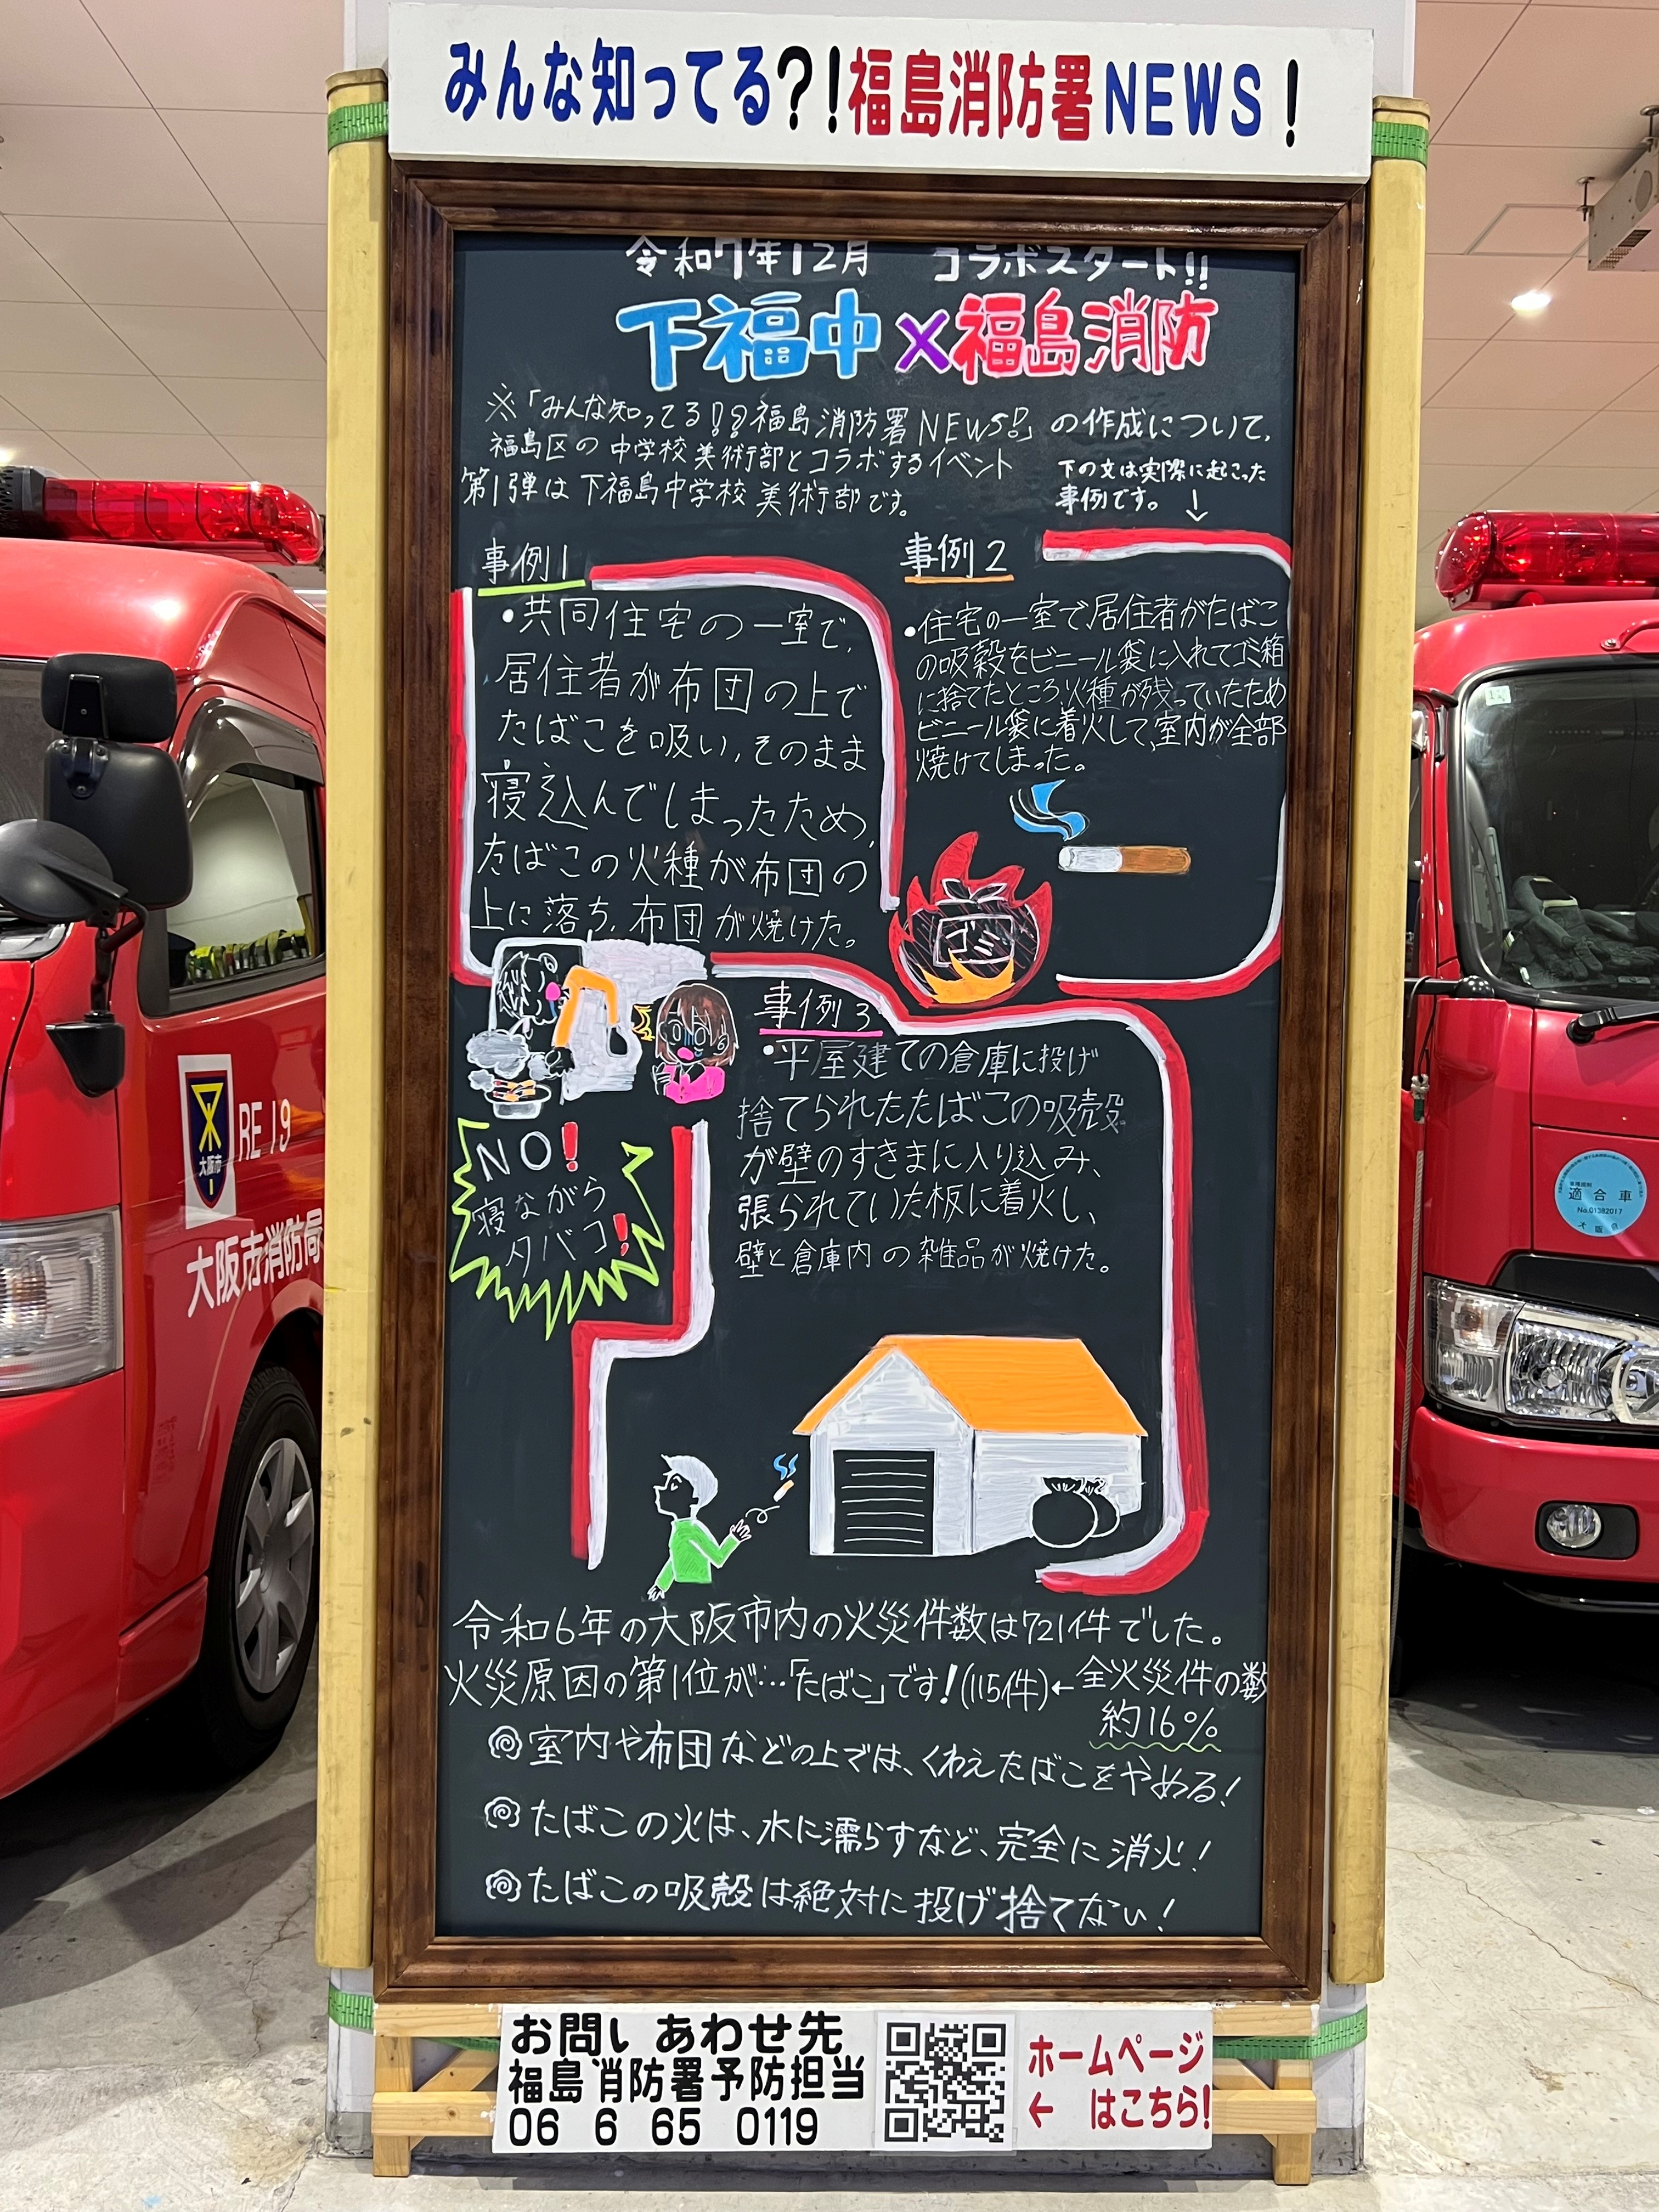 みんな知ってる?!福島消防署NEWS!
令和7年12月 コラボスタート!!
下福中×福島消防
※「みんな知ってる!?福島消防署NEWS!」の作成について、
福島区の中学校美術部とコラボするイベント
第1弾は下福島中学校美術部です。
下の文は実際に起こった
事例です。↓
事例1
・共同住宅の一室で、
居住者が布団の上で
たばこを吸い、そのまま
寝込んでしまったため、
たばこの火種が布団の
上に落ち、布団が焼けた。
事例2
・住宅の一室で居住者がたばこ
の吸殻をビニール袋に入れてゴミ箱
に捨てたところ、火種が残っていたため
ビニール袋に着火して、室内が全部
焼けてしまった。
ゴミ
事例3
・平屋建ての倉庫に投げ
捨てられたたばこの吸殻
が壁のすきまに入り込み、
張られていた板に着火し、
壁と倉庫内の雑品が焼けた。
NO!
寝ながら
タバコ!
令和6年の大阪市内の火災件数は721件でした。
火災原因の第1位が…「たばこ」です!(115件)←全火災件の数
約16%
室内や布団などの上では、くわえたばこをやめる!
たばこの火は、水に濡らすなど、完全に消火!
たばこの吸殻は絶対に投げ捨てない!
お問い あわせ先
福島消防署予防担当
06 6 65 0119
ホームページ
← はこちら!
大阪市
RE 19
大阪市消防局
適合車
No.01382017